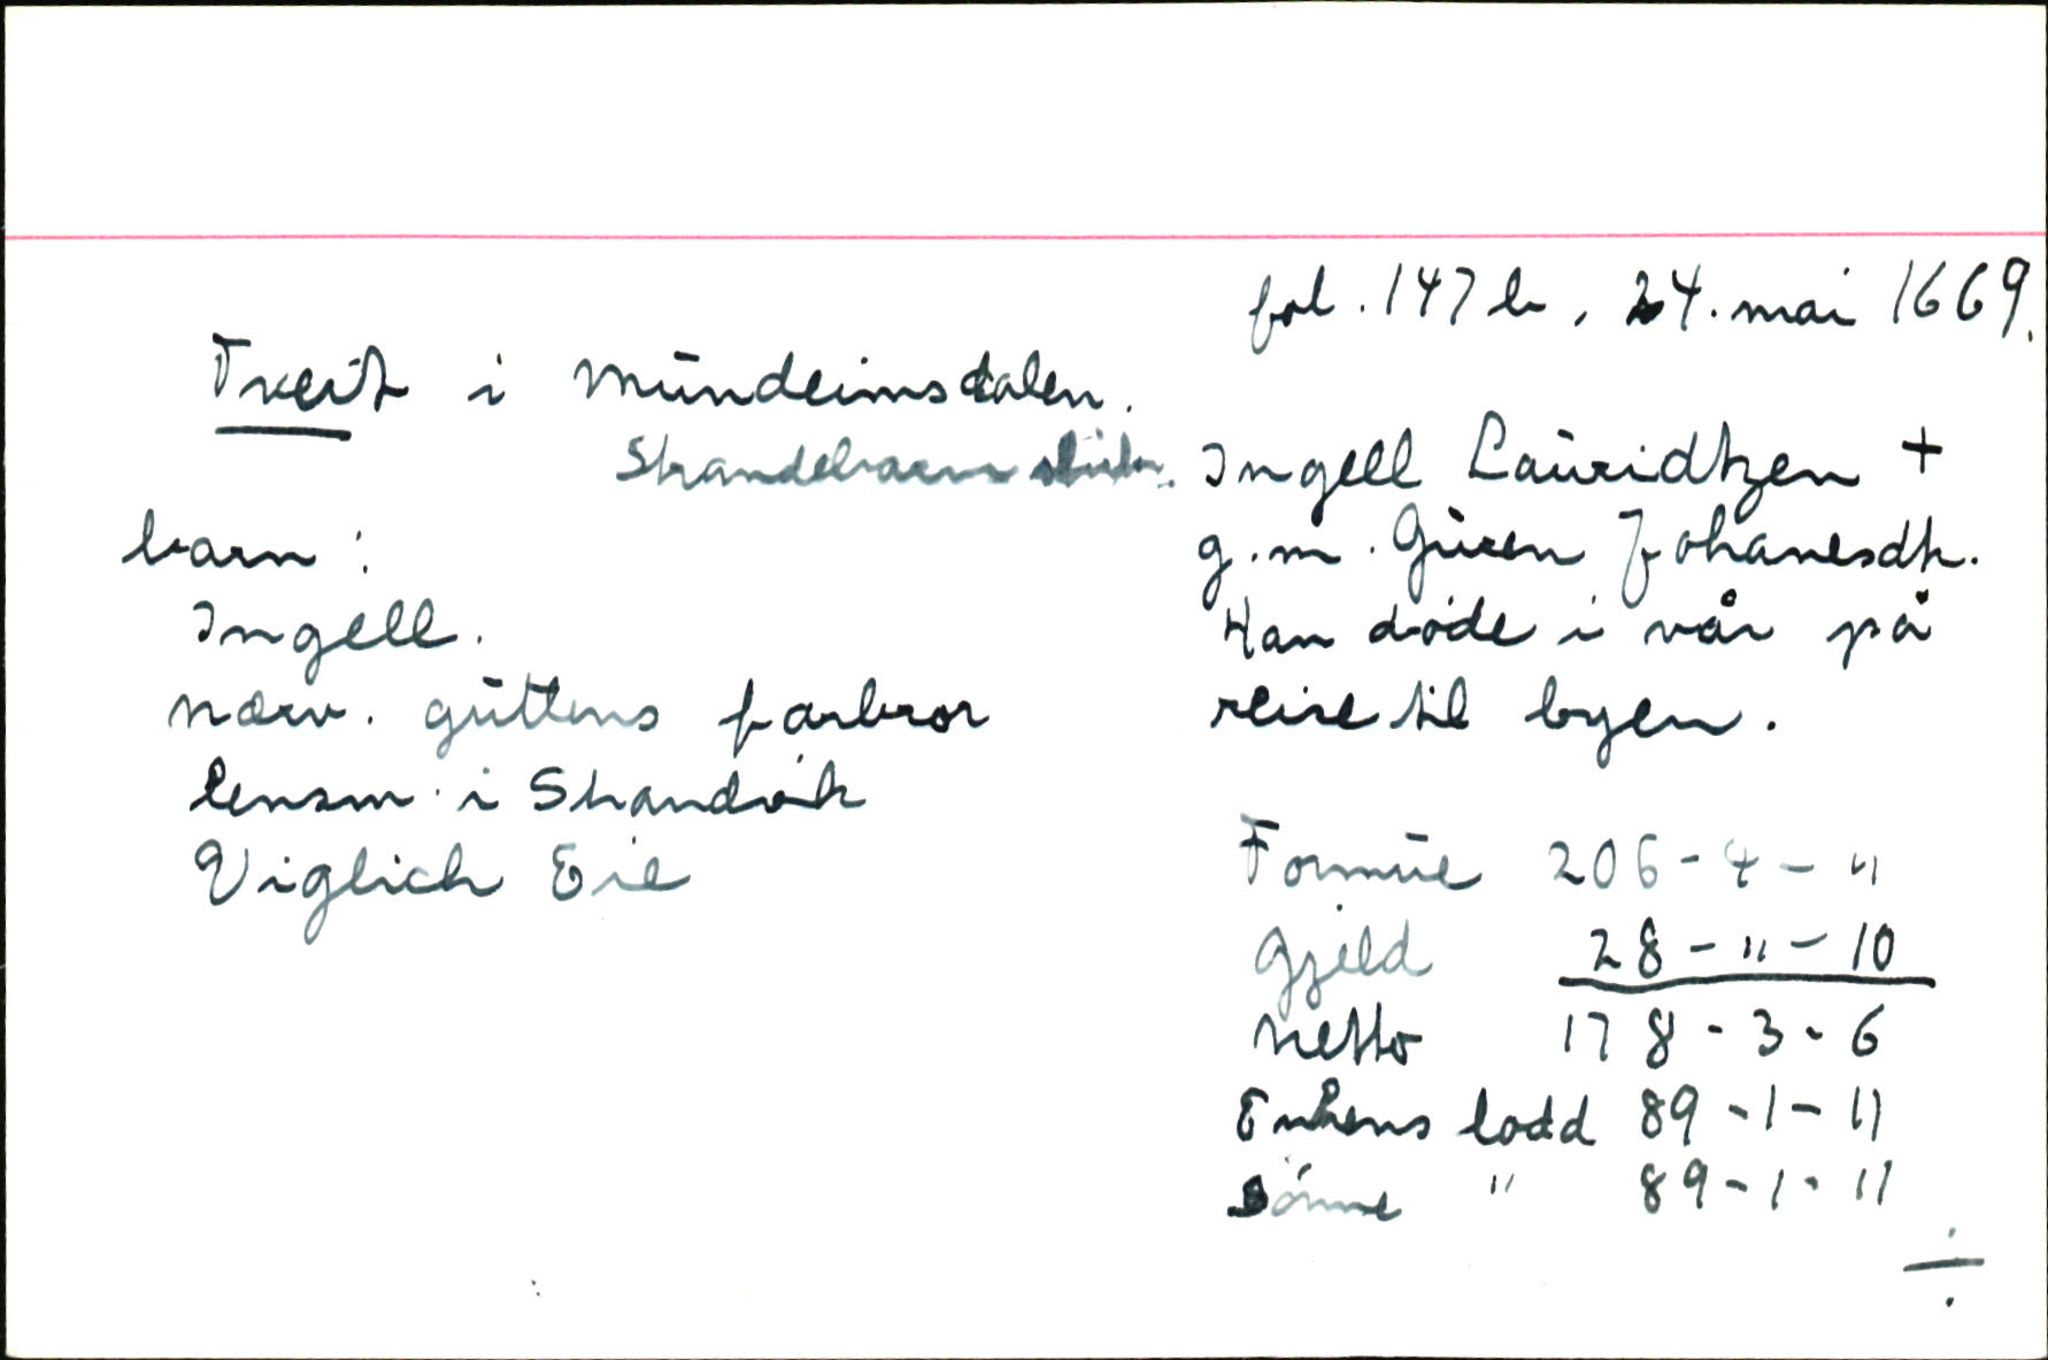 fol. 147 b, 24. mai 1669.
Tveit i Mundeimsdalen.
Strandebarm
barn:
Ingell.
nærv. guttens farbror
lensm. i Strandvik
Viglich Eie
Ingell Lauridtzen +
g.m. Guren Johanesdtr.
Han døde i vår på
reise til byen.
Formue 206 - 4 - "
Gjeld 28 - " - 10
Netto 178 - 3 - 6
Enkens lodd 89 - 1 - 11
Sønne " 89 - 1 - 11
÷